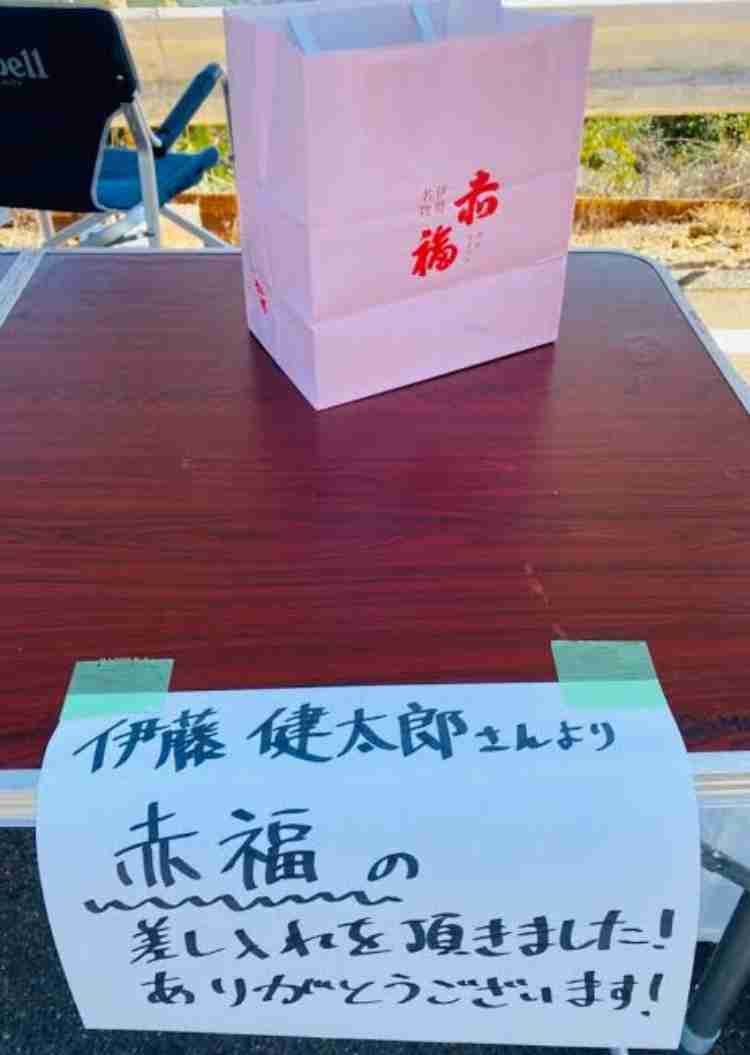 bell
赤福
伊藤 健太郎さんより
赤福の
差し入れを頂きました!
ありがとうございます!